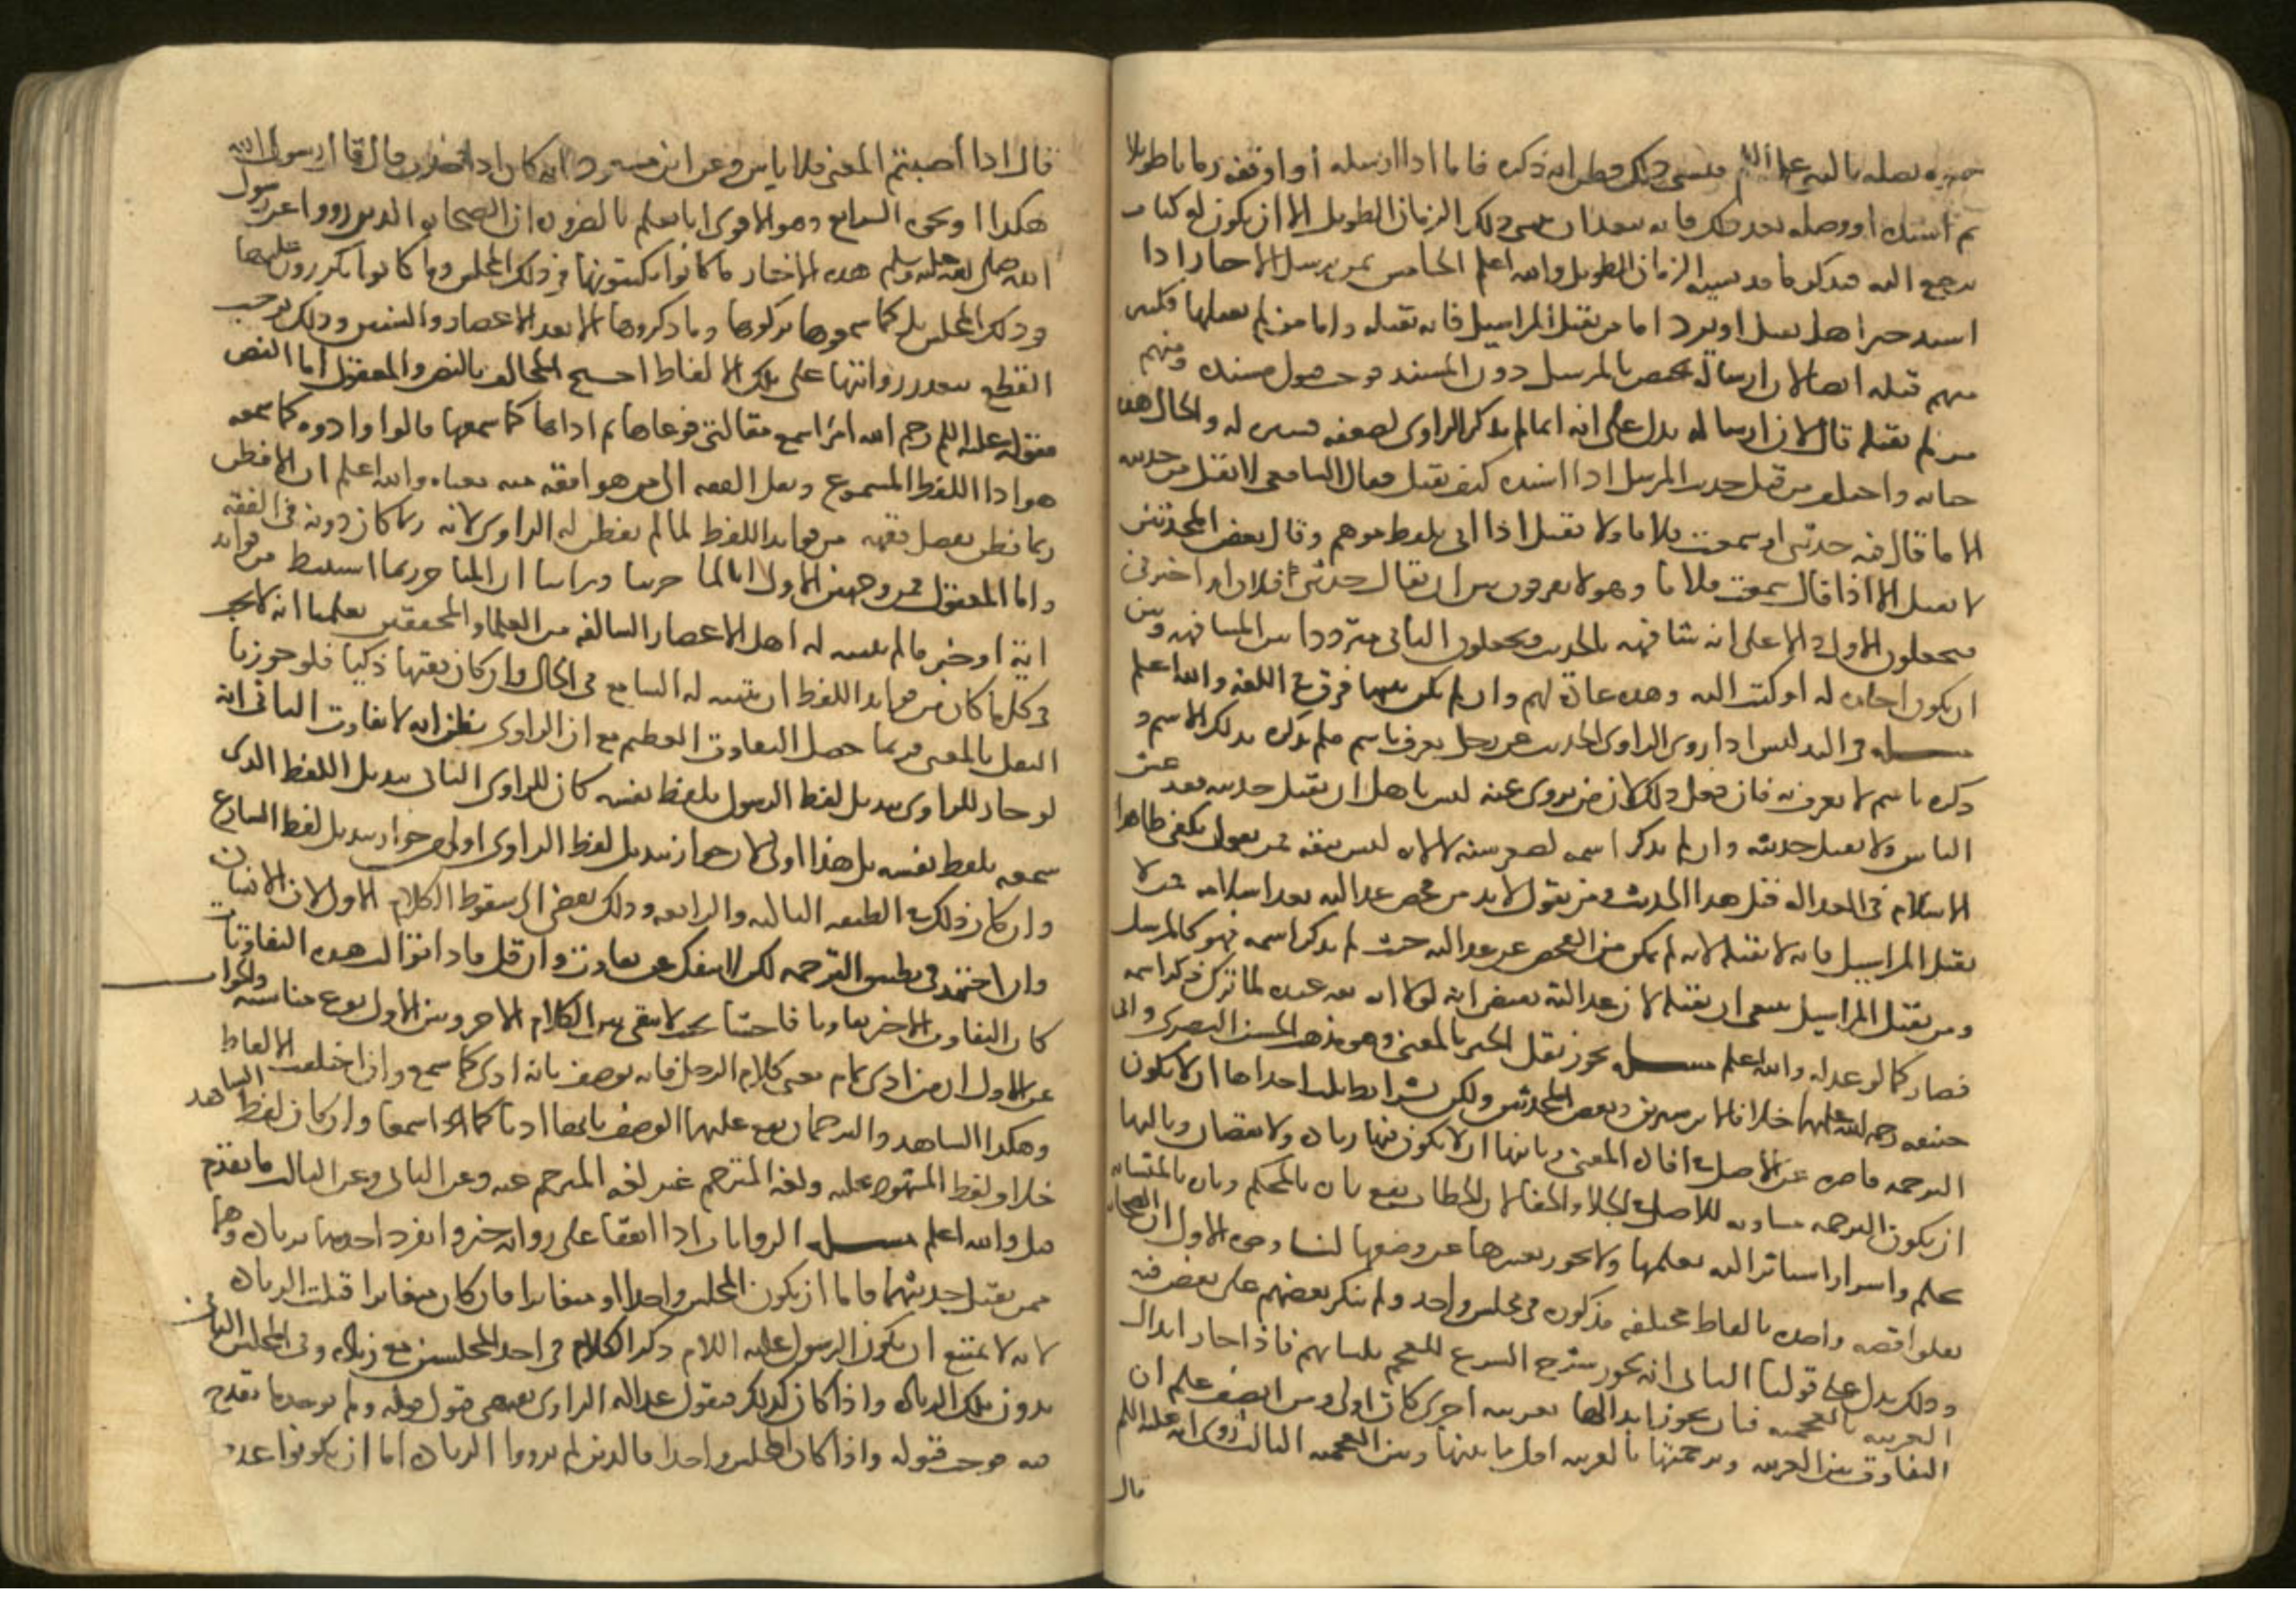 مره يصله بالنبي عليه السلام فنسي ذلك وظن انه ذكره فاما اذا ارسله أو اوقفه زمانا طويلا
ثم اسنده او وصله بعد ذلك فانه يبعد ان ينسى ذلك الزمان الطويل الا ان يكون له كتاب
يرجع اليه فيذكر ما قد نسيه الزمان الطويل والله اعلم الخامس من يرسل الاخبار اذا
اسند خبرا هل يقبل او يرد اما من يقبل المراسيل فانه يقبله واما من لم يقبلها فكثير
منهم قبله ايضا لان ارساله يختص بالمرسل دون المسند فوجب قبول مسنده ومنهم
من لم يقبله قال لان ارساله يدل على انه انما لم يذكر الراوي لضعفه فستره له والحال هذه
خيانه واختلف من قبل حديث المرسل اذا اسنده كيف يقبل فقال الشافعي لا يقبل من حديثه
الا ما قال فيه حدثني او سمعت فلانا ولا يقبل اذا اتى بلفظ موهم وقال بعض المحدثين
لا يقبل الا اذا قال سمعت فلانا وهولا يفرقون بين ان يقال حدثني فلان او اخبرني
فيجعلون الاول دالا على انه شافهه بالحديث ويجعلون الثاني مترددا بين المشافهه وبين
ان يكون اجازه له او كتب اليه وهذه عادة لهم وان لم يكن بينهما فرق في اللغه والله اعلم
مسله في التدليس اذا روى الراوي الحديث عن رجل يعرف باسم فلم يذكره بذلك الاسم و
ذكره باسم لا يعرف به فان فعل ذلك لان من يروي عنه ليس باهل ان يقبل حديثه فقد غش
الناس ولا يقبل حديثه وان لم يذكر اسمه لصغر سنه لا لانه ليس بثقه فمن يقول يكفي ظاهرا
الاسلام في العداله قبل هذا الحديث ومن يقول لا بد من فحص عدالته بعد اسلامه فمن لا
يقبل المراسيل فانه لا يقبله لانه لم يتمكن من الفحص عن عدالته حيث لم يذكر اسمه فهو كالمرسل
ومن يقبل المراسيل ينبغي ان يقبله لان عدالته تقتضي انه لولا انه ثقه عنده لما ترك ذكر اسمه
فصار كما لو عدله والله اعلم مسله يجوز نقل الخبر بالمعنى وهو مذهب الحسن البصري وابي
حنيفه رحمه الله عليهما خلافا لابن سيرين وبعض المحدثين ولكن بشرايط ثلث احداها ان لا يكون
الترجمه قاصره عن الاصل في افادة المعنى وثانيها ان لا يكون فيها زيادة ولا نقصان وثالثها
ان يكون الترجمه مساويه للاصل في الجلاء والخفا لان الخطاب يقع تارة بالمحكم وتارة بالمتشابه
حكم واسرار استاثر الله بعلمها ولا يجوز تغييرها عن وضعها لنا وجوه الاول ان الصحابه
نقلوا قصه واحده بالفاظ مختلفه مذكوره في مجلس واحد ولم ينكر بعضهم على بعض فيه
وذلك يدل على قولنا الثاني انه يجوز شرح الشرع للعجم بلسانهم فاذا جاز ابدال
العربيه بالعجميه فبان يجوز ابدالها بعربيه اخرى كان اولى ومن انصف علم ان
التفاوت بين العربيه وترجمتها بالعربيه اقل مما بينها وبين العجميه الثالث روى انه عليه السلم
قال
قال اذا أصبتم المعنى فلا باس وعن ابن مسعود انه كان اذا حدث قال قال رسول الله
هكذا او نحوه الرابع وهو الاقوى انا نعلم بالضروره ان الصحابه الذين رووا عن رسول
الله صلى الله عليه وسلم هذه الاخبار ما كانوا يكتبونها في ذلك المجلس وما كانوا يكررون عليها
في ذلك المجلس بل كما سمعوها تركوها وما ذكروها الا بعد الاعصار والسنين وذلك يوجب
القطع بتعذر روايتها على تلك الالفاظ احتج المخالف بالنص والمعقول اما النص
فقوله عليه السلم رحم الله امرأ سمع مقالتي فوعاها ثم اداها كما سمعها قالوا واداوه كما سمعه
هو اداا اللفظ المسموع ونقل الفقه الى من هو افقه منه معناه والله اعلم ان الافطن
ربما فطن بفضل فقهه من فوايد اللفظ لما لم يفطن له الراوي لانه ربما كان دونه في الفقه
واما المعقول فمن وجهين الاول انا لما جربنا وراينا ان المتاخر ربما استنبط من فوايد
اية او خبر ما لم يتنبه له اهل الاعصار السالفه من العلماء والمحققين فعلمنا انه لا يجب
في كل ما كان من فوايد اللفظ ان يتنبه له السامع في الحال وان كان فقيها ذكيا فلو جوزنا
النقل بالمعنى فربما حصل التفاوت العظيم مع ان الراوي يظن انه لا تفاوت الثاني انه
لو جاز للراوي تبديل لفظ الرسول بلفظ نفسه كان للراوي الثاني تبديل اللفظ الذي
سمعه بلفظ نفسه بل هذا اولى لان جواز تبديل لفظ الراوي اولى من جواز تبديل لفظ الشارع
وان كان ذلك في الطبقه الثالثه والرابعه وذلك يفضي الى سقوط الكلام الاول لان الانسان
وان اجتهد في تطبيق الترجمه لكن لا ينفك عن تفاوت وان قل فاذا توالت هذه التفاوتات
كان التفاوت الاخير تفاوتا فاحشا بحيث لا يبقى بين الكلام الاخير وبين الاول نوع مناسبه والجواب
عن الاول ان من ادى تمام معنى كلام الرجل فانه يوصف بانه ادى كما سمع وان اختلفت الالفاظ
وهكذا الشاهد والترجمان يقع عليهما الوصف بانهما اديا كما سمعا وان كان لفظ الشاهد
خلاف لفظ المشهود عليه ولغه المترجم غير لغه المترجم عنه وعن الثاني وعن الثالث ما تقدم
قبل والله اعلم مسله الروايان اذا اتفقا على روايه خبر وانفرد احدهما بزيادة وهما
ممن يقبل حديثهما فاما ان يكون المجلس واحدا او متغايرا فان كان متغايرا قبلت الزيادة
لانه لا يمتنع ان يكون الرسول عليه السلام ذكر الكلام في احد المجلسين مع زيادة وفي المجلس الثاني
بدون تلك الزيادة واذا كان كذلك فنقول عداله الراوي تقتضي قبول قوله ولم يوجد ما يقدح
فيه فوجب قبوله واذا كان المجلس واحدا فالذين لم يرووا الزيادة اما ان يكونوا عددا